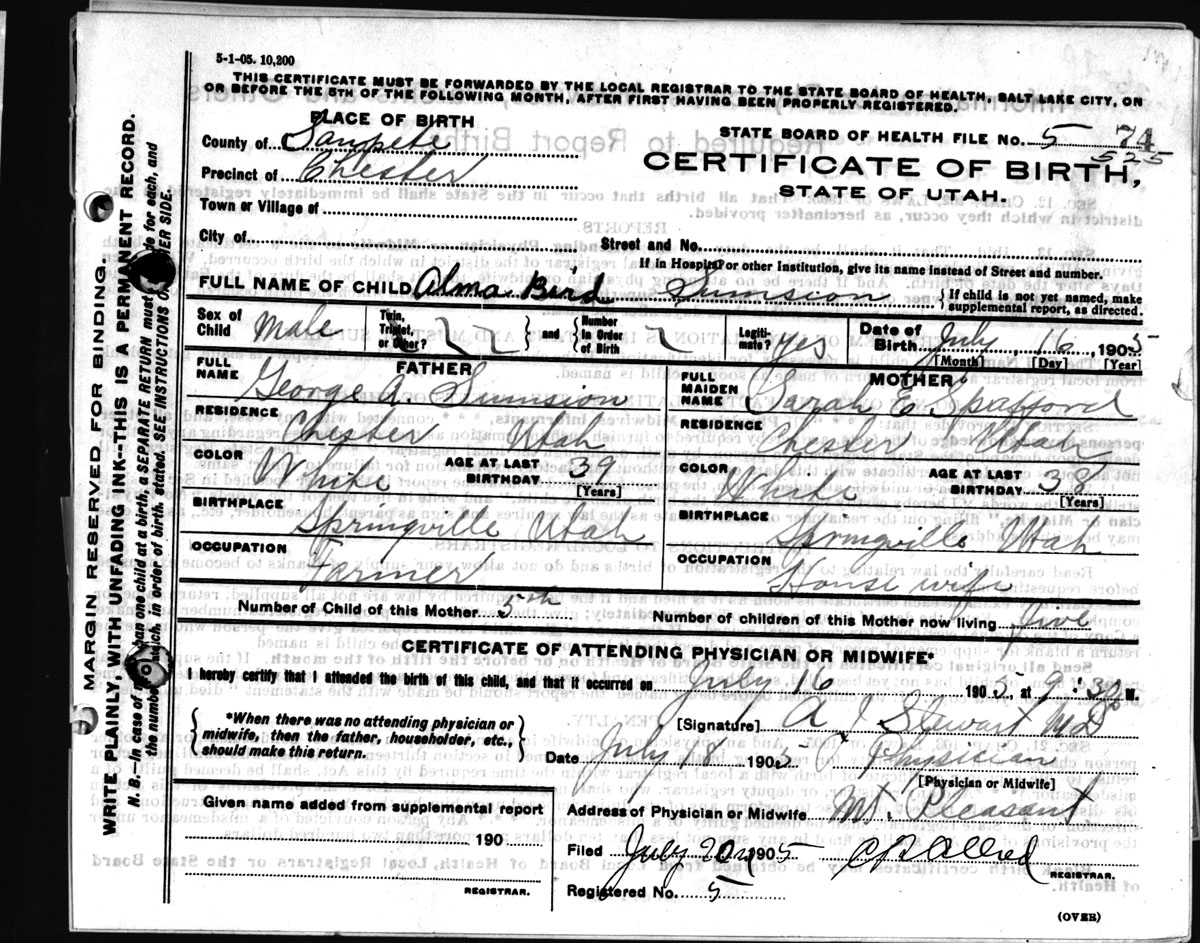 5-1-05. 10,200
THIS CERTIFICATE MUST BE FORWARDED BY THE LOCAL REGISTRAR TO THE STATE BOARD OF HEALTH, SALT LAKE CITY, ON
OR BEFORE THE 5TH OF THE FOLLOWING MONTH, AFTER FIRST HAVING BEEN PROPERLY REGISTERED.
PLACE OF BIRTH
County of Sanpete
Precinct of Chester
Town or Village of
City of
STATE BOARD OF HEALTH FILE No. 5 74
525
CERTIFICATE OF BIRTH,
STATE OF UTAH.
Street and No.
If in Hospital or other Institution, give its name instead of Street and number.
FULL NAME OF CHILD Alma Bird Sumsion { If child is not yet named, make supplemental report, as directed.
Sex of Child Male
Twin, Triplet, or Other? } and { Number In Order of Birth
Legitimate? yes
Date of Birth July 16, 1905
[Month] [Day] [Year]
FATHER
FULL NAME George A. Sumsion
RESIDENCE Chester Utah
COLOR White AGE AT LAST BIRTHDAY 39
[Years]
BIRTHPLACE Springville Utah
OCCUPATION Farmer
MOTHER
FULL MAIDEN NAME Sarah E Spafford
RESIDENCE Chester Utah
COLOR White AGE AT LAST BIRTHDAY 38
[Years]
BIRTHPLACE Springville Utah
OCCUPATION House wife
Number of Child of this Mother 5th
Number of children of this Mother now living five
CERTIFICATE OF ATTENDING PHYSICIAN OR MIDWIFE*
I hereby certify that I attended the birth of this child, and that it occurred on July 16 1905, at 9:30 M.
{ *When there was no attending physician or
midwife, then the father, householder, etc.,
should make this return. }
[Signature] A J Stewart MD
Date July 18 1905 Physician
[Physician or Midwife]
Given name added from supplemental report
190
REGISTRAR.
Address of Physician or Midwife Mt. Pleasant
Filed July 20 1905 Allred
REGISTRAR.
Registered No. 5
(OVER)
MARGIN RESERVED FOR BINDING.
WRITE PLAINLY, WITH UNFADING INK--THIS IS A PERMANENT RECORD.
N. B.--In case of more than one child at a birth, a SEPARATE RETURN must be made for each, and
the number of each, in order of birth, stated. SEE INSTRUCTIONS ON OTHER SIDE.